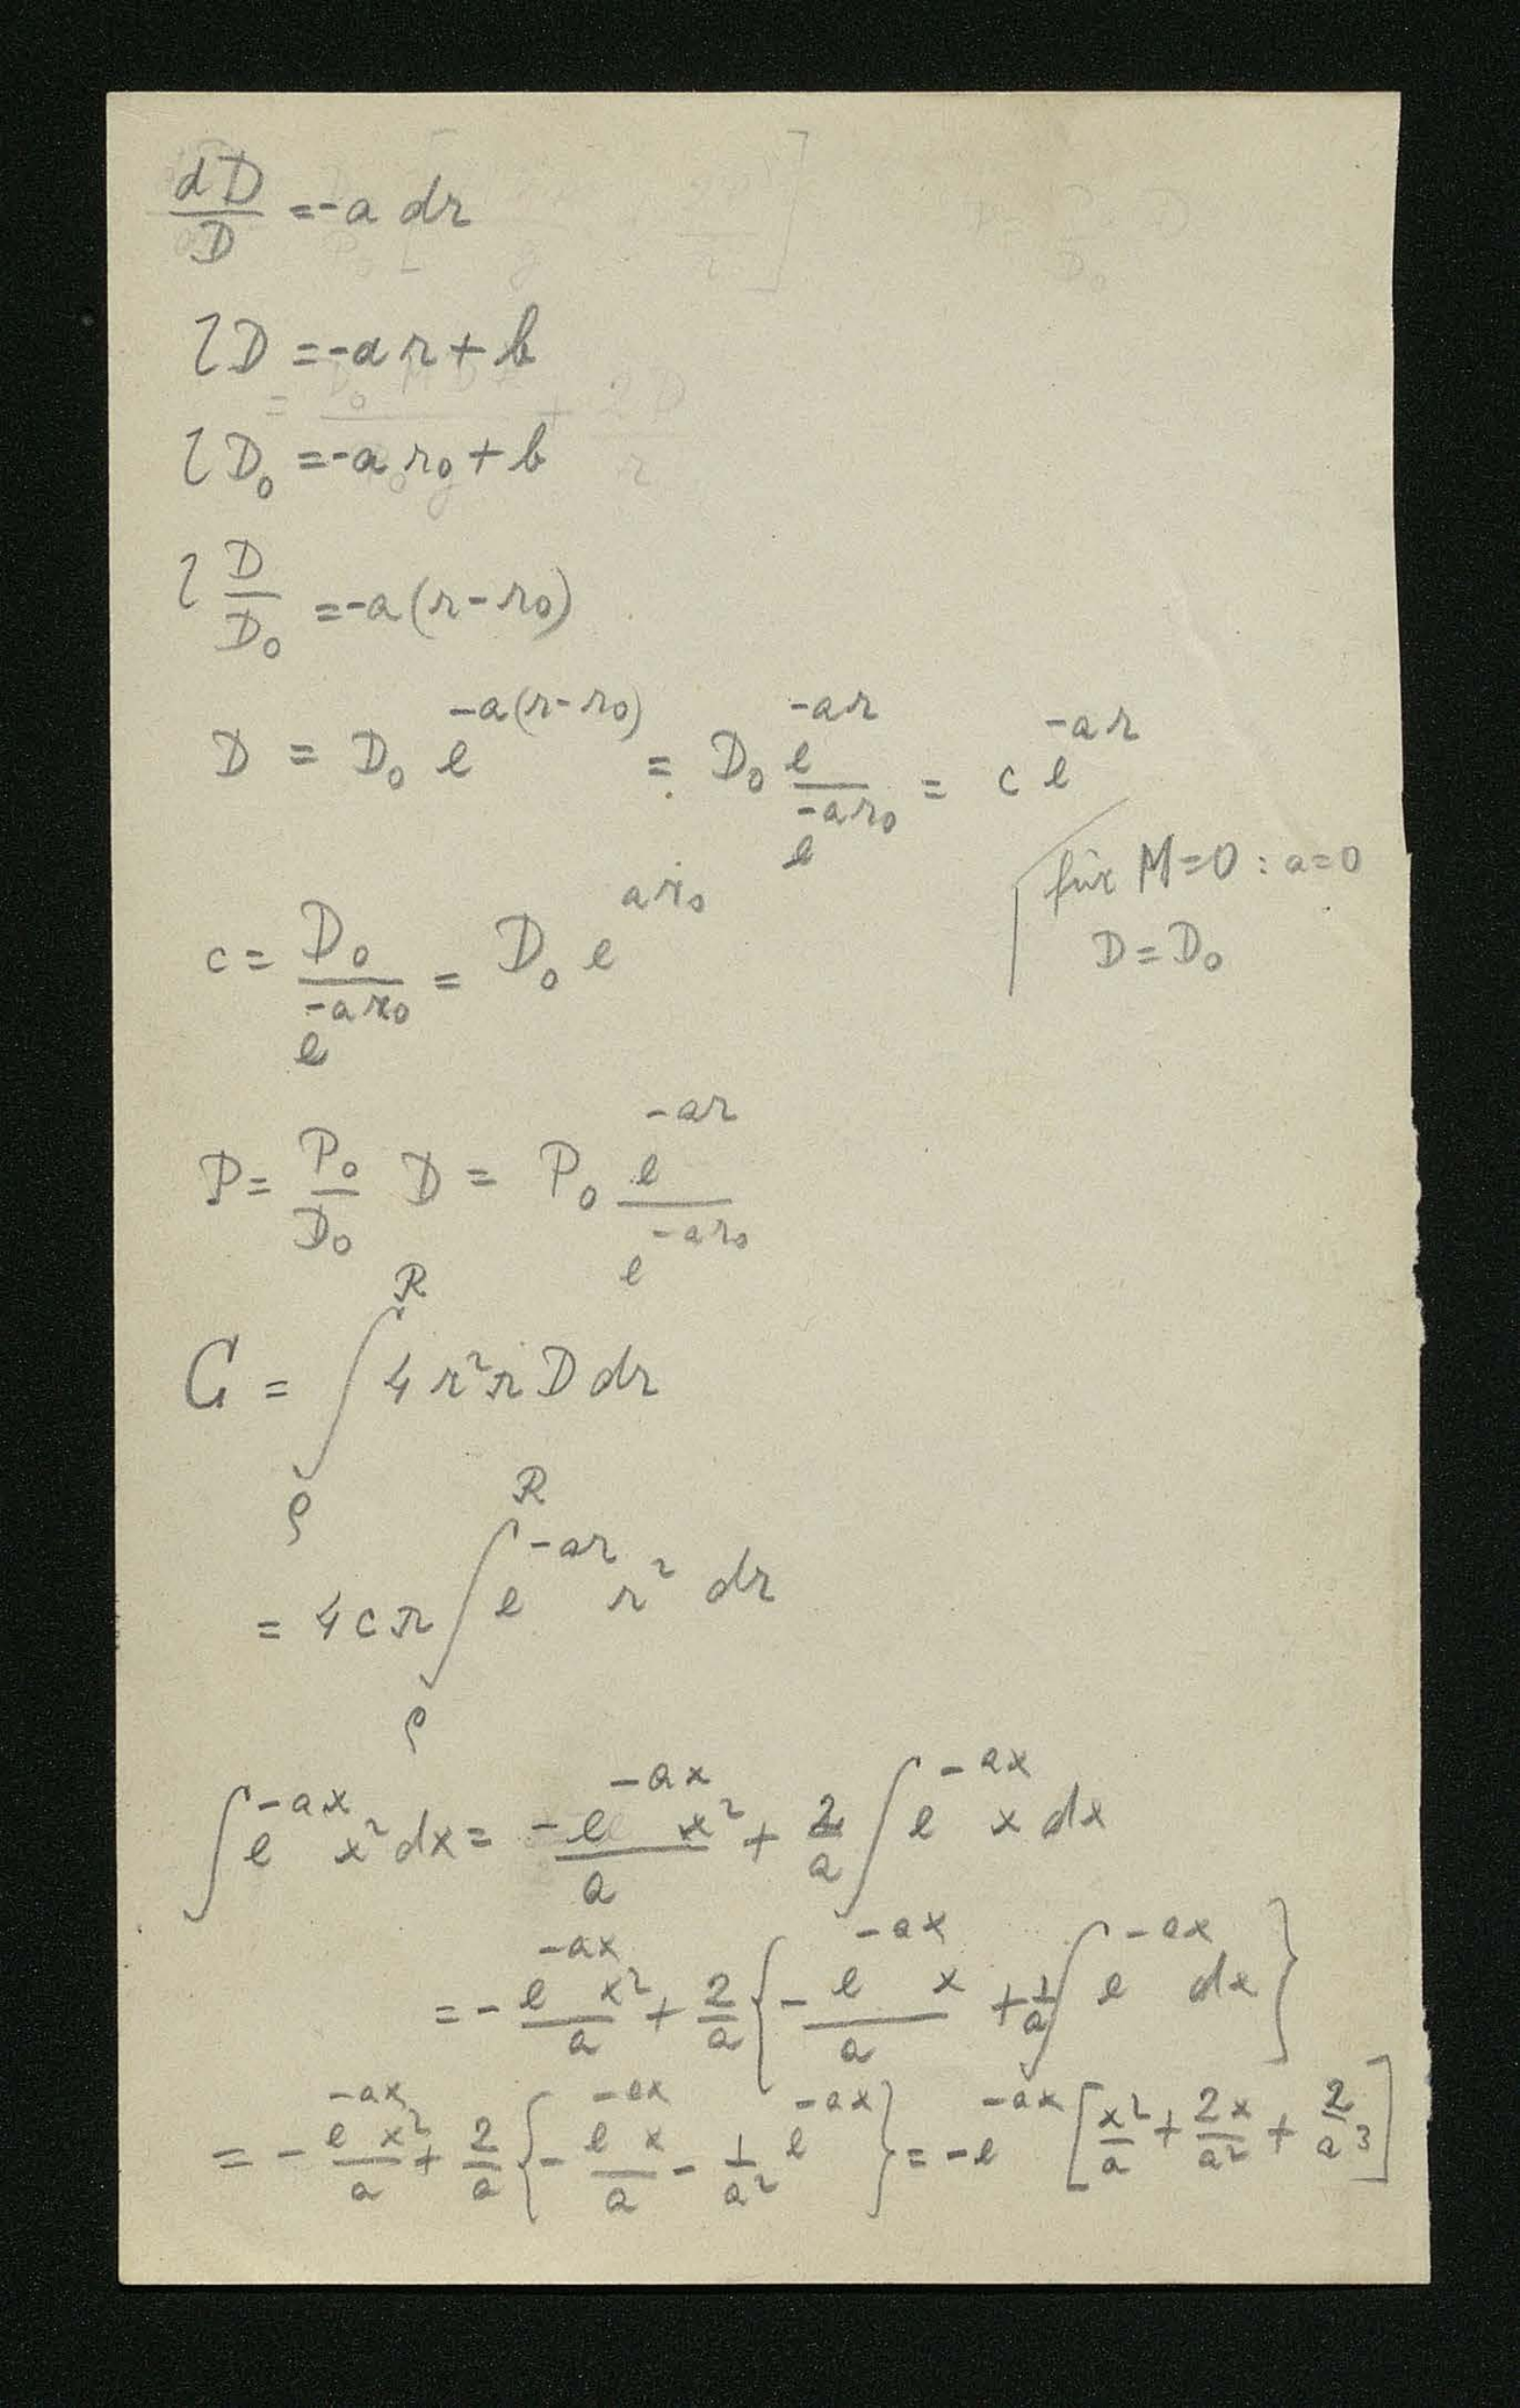 dD/D = -a dr
lD = -ar + b
lD₀ = -ar₀ + b
l D/D₀ = -a(r-r₀)
D = D₀ e^{-a(r-r₀)} = D₀ e^{-ar}/e^{-ar₀} = c e^{-ar}
für M=0 : a=0
D=D₀
c = D₀/e^{-ar₀} = D₀ e^{ar₀}
P = P₀/D₀ D = P₀ e^{-ar}/e^{-ar₀}
G = ∫_ρ^R 4r²π D dr
= 4cπ ∫_ρ^R e^{-ar} r² dr
∫ e^{-ax} x² dx = -e^{-ax} x²/a + 2/a ∫ e^{-ax} x dx
= - e^{-ax} x²/a + 2/a { - e^{-ax} x/a + 1/a ∫ e^{-ax} dx }
= - e^{-ax} x²/a + 2/a { - e^{-ax} x/a - 1/a² e^{-ax} } = -e^{-ax} [ x²/a + 2x/a² + 2/a³ ]